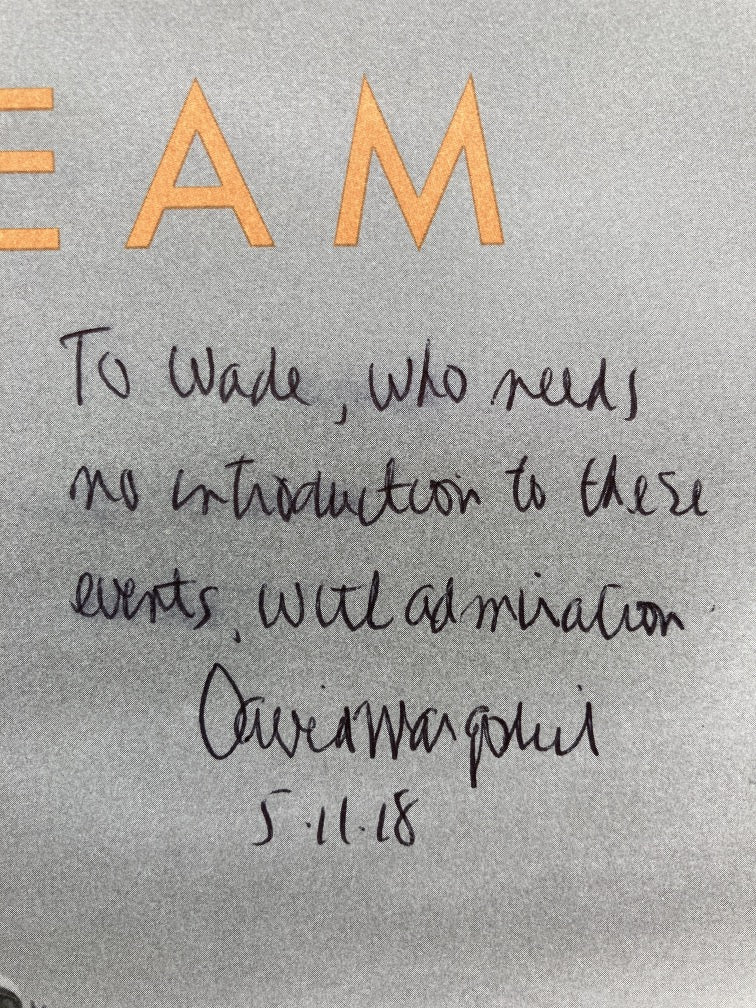 EAM
To Wade, who needs
no introduction to these
events, with admiration
David Margolick
5.11.18